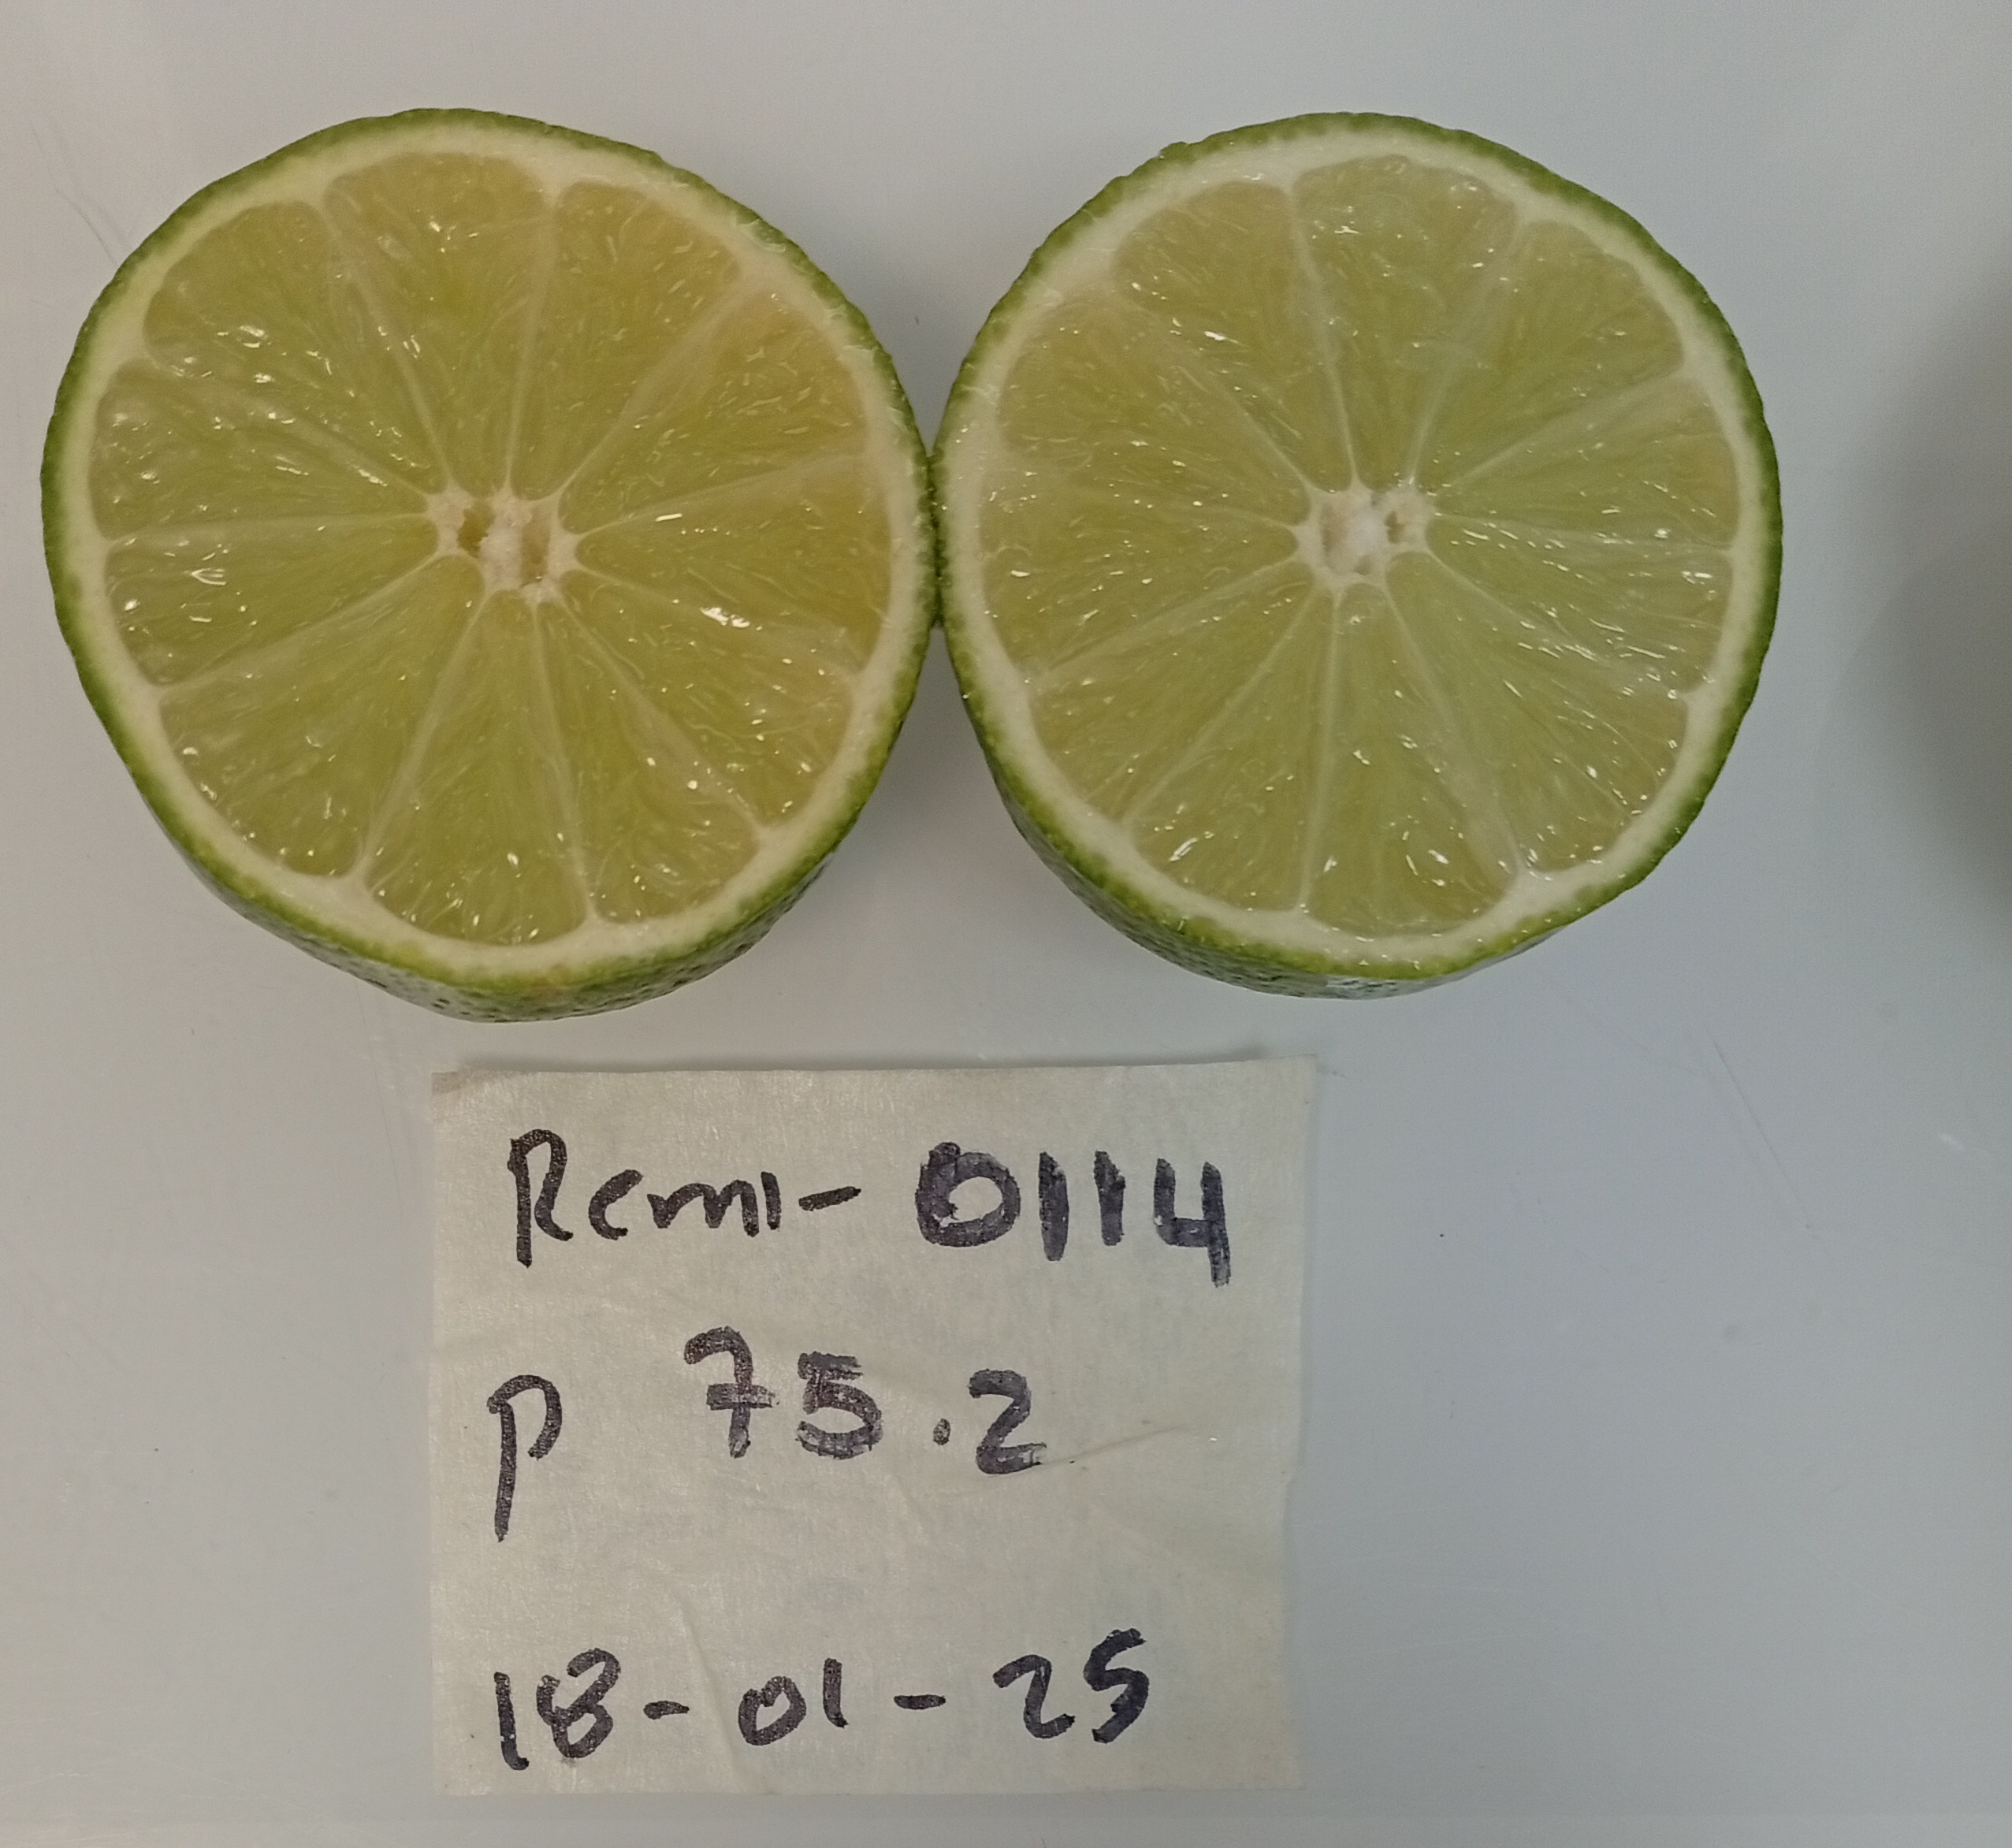 Remi-0114
P 75.2
18-01-25